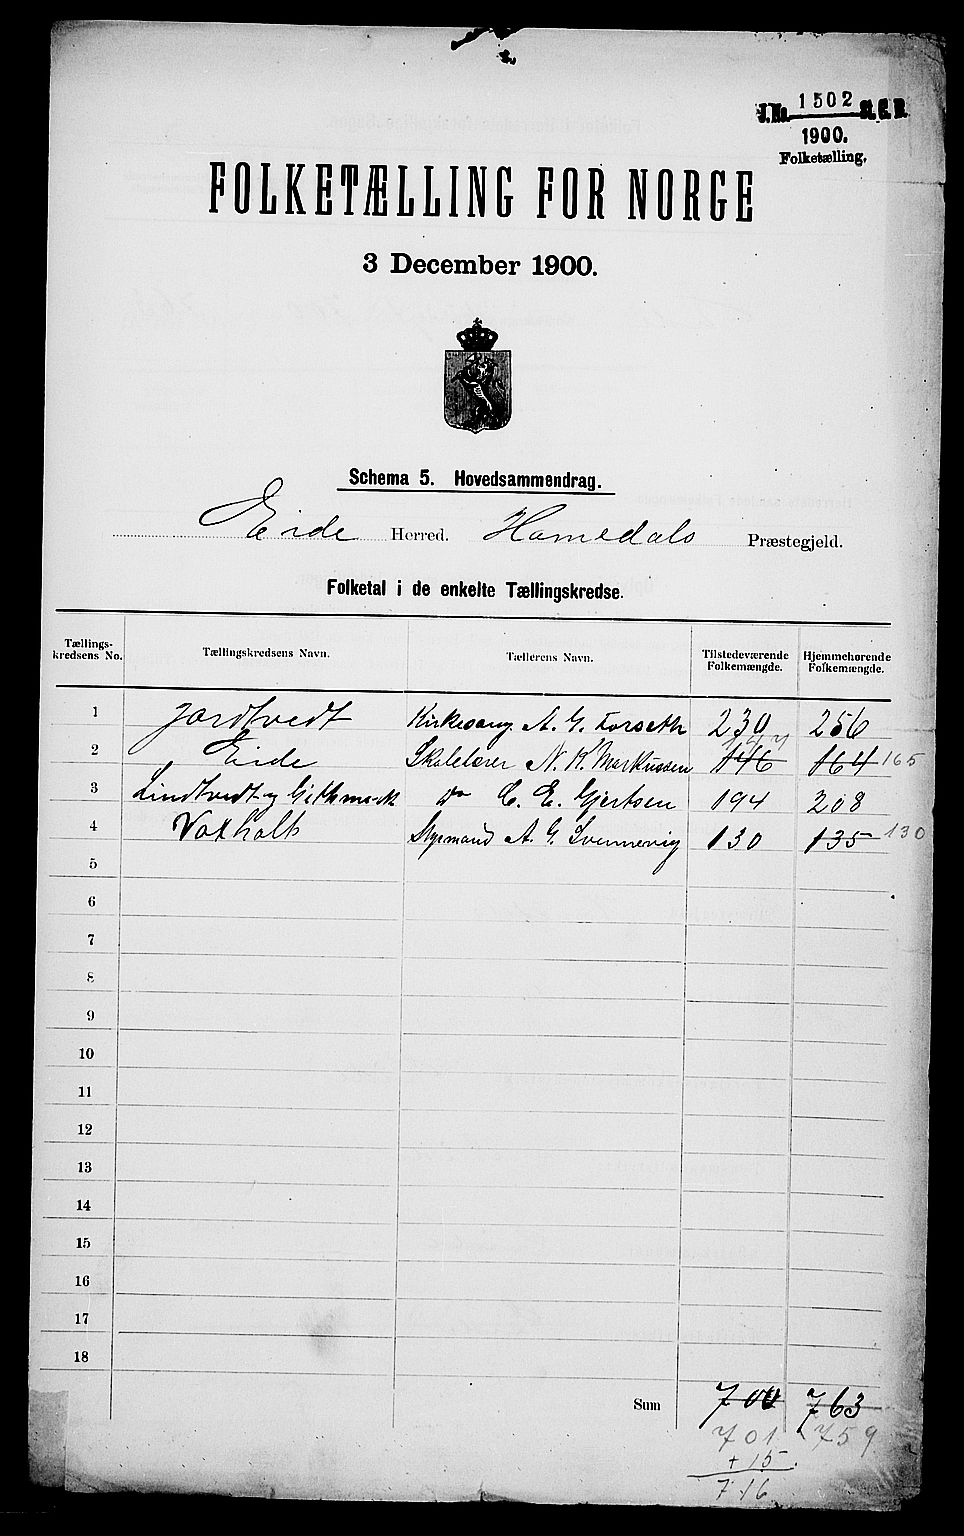 J.No. 1502 St. C. B.
1900.
Folketælling.
FOLKETÆLLING FOR NORGE
3 December 1900.
Schema 5. Hovedsammendrag.
Eide Herred. Homedals Præstegjeld.
Folketal i de enkelte Tællingskredse.
Tællings-kredsens No. Tællingskredsens Navn. Tællerens Navn. Tilstedeværende Folkemængde. Hjemmehørende Folkemængde.
1 Jordtvedt Kirkesang. A. G. Forseth 230 256
2 Eide Skolelærer N. K. Markussen 146 147 164 165
3 Lindtvedt og do C. E. Gjertsen 194 208
4 Voxholt Styrmand A. G. Svennevig 130 135 130
5
6
7
8
9
10
11
12
13
14
15
16
17
18
Sum 700 763
701 759
+ 15
716